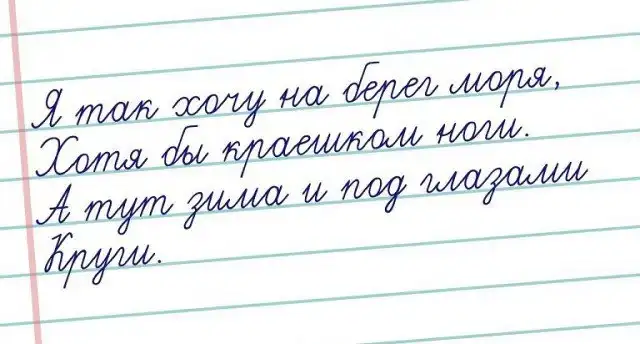 Я так хочу на берег моря,
Хотя бы краешком ноги.
А тут зима и под глазами
Круги.